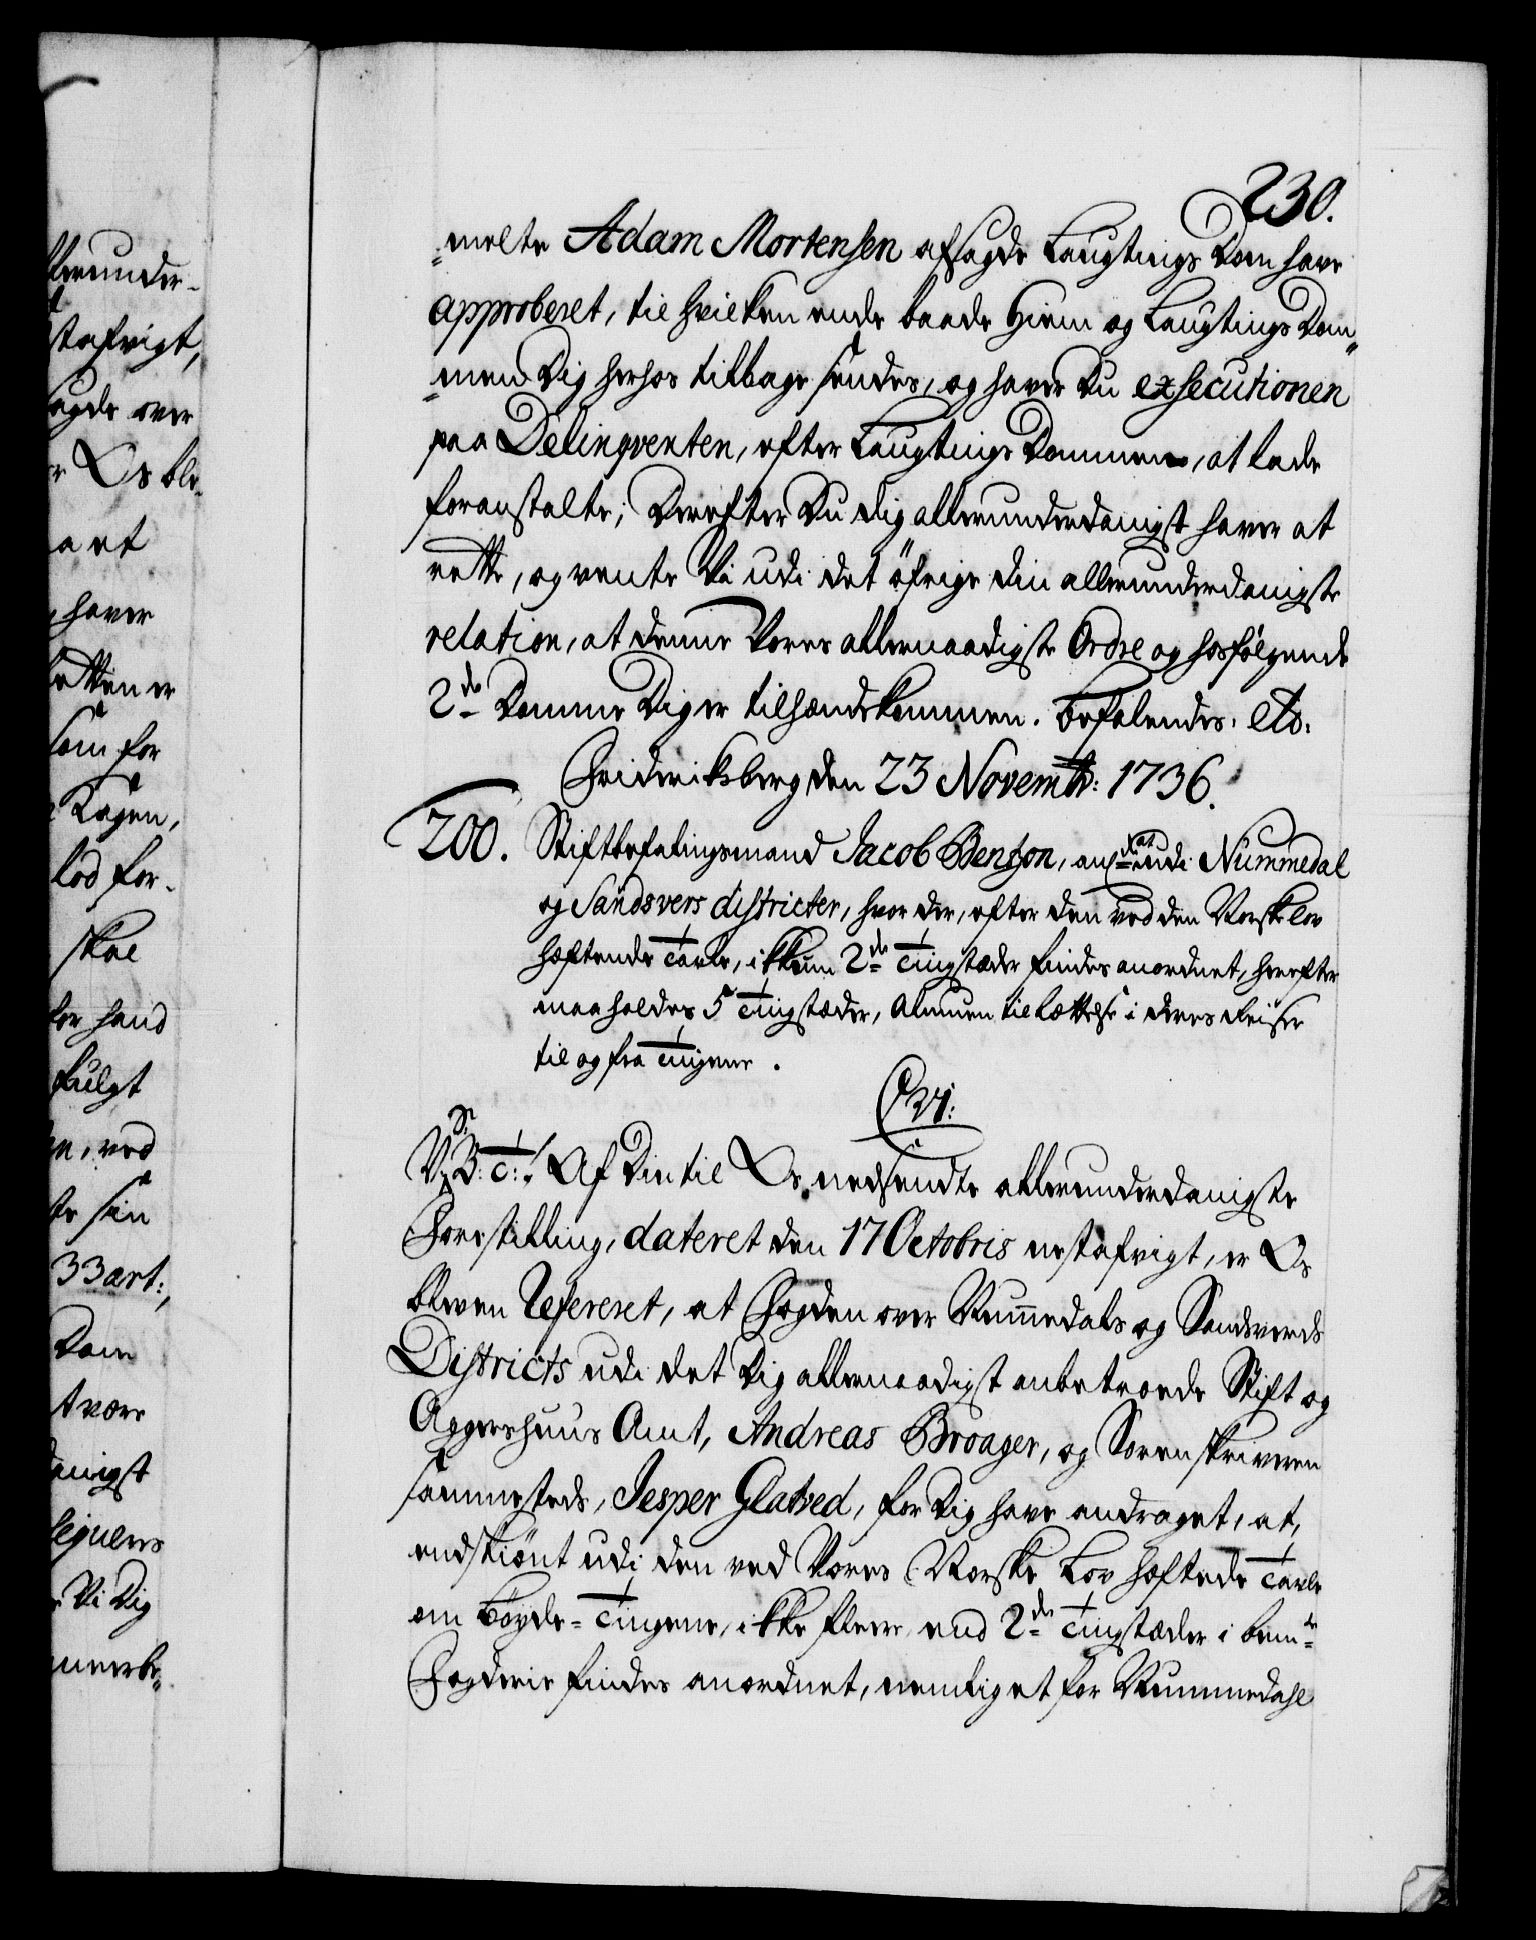 230.
=melte Adam Mortensen afsagde Laugtings Dom have
approberet, til hvilken ende baade Hiem og Laugtings Dom„
=men Dig herhos tilbage sendes, og haver Du exsecutionen
paa Delinqventen, efter Laugtings Dommen, at lade
foranstalte; Derefter Du dig allerunderdanigst haver at
rette, og vente Vi udi det öfrige din allerunderdanigste
relation, at denne Vores allernaadigste Ordre og hosfölgende
2de Domme Dig er tilhændekommen. Befalendes. etc:
Frideriksberg den 23 Novembr: 1736.
200. Stiftbefalingsmand Jacob Benzon, at udi Nummedal
og Sandsvers districter, hvor der, efter den ved den Norske lov
hæftende Tavle, ikkun 2de Tingstæder findes anordnet, herefter
maa holdes 5 Tingstæder, Almuen til Lettelse i deres Reiser
til og fra Tingene.
C6ti:
V. S. B: T:! Af Din til Os nedsendte allerunderdanigste
Forestilling, dateret den 17 Octobris nestafvigt, er Os
bleven Refereret, at Fogden over Nummedals og Sandsverds
Districts udi det Dig allernaadigst anbetroede Stift og
Aggershuus Amt, Andreas Broager, og Sorenskriveren
sammesteds, Jesper Glatved, for Dig have andraget, at,
endskiönt udi den ved Vores Norske Lov hæftede Tavle
om Böyde-Tingene, ikke fleere, end 2de Tingstæder i bemte
Fogderie findes anordnet, nemlig et for Nummedahl
llerunder-
stafvigt,
sagde over
r Os ble-
a et
haver
Retten er
som for
Kagen,
lod for-
skal
for hand
fulgt
en, ved
te sin
33 art:,
Dom
t være
danigst
seqvens
Vi Dig